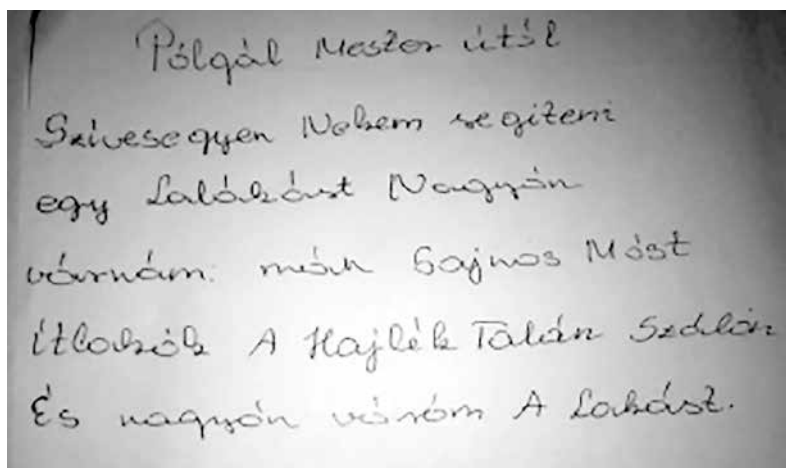 Pólgál Mester útól
Szivesegyen Nekem segiteni
egy Lalákást Nagyón
várnám. márh Sajnos Móst
ítlakók A Hajlék Talán Szálón
És nagyón váróm A Lakást.